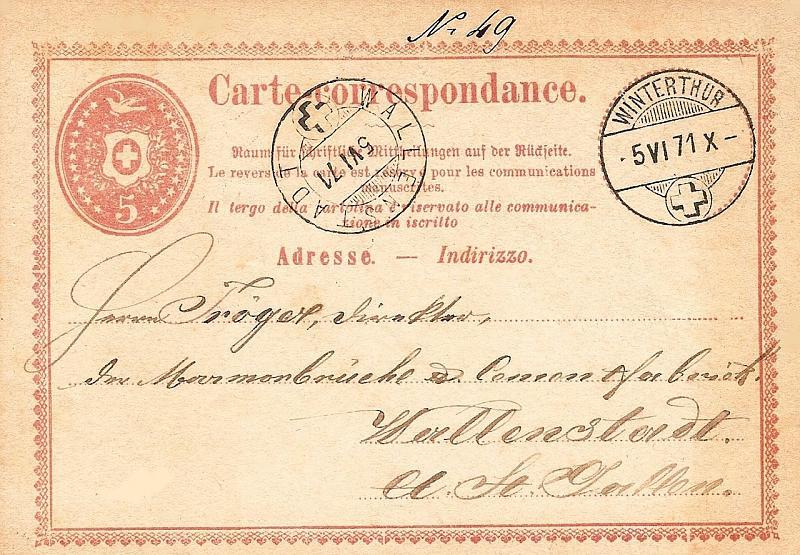 No. 49
Carte-correspondance.
WINTERTHUR
5 VI 71 X –
WALLENSTADT
5 VI 71
5
Raum für schriftliche Mittheilungen auf der Rückseite.
Le revers de la carte est réservé pour les communications
manuscrites.
Il tergo della cartolina è riservato alle communica-
zione in iscritto
Adresse. — Indirizzo.
Herrn Tröger, Direktor,
der Marmorbrüche & Cementfabrick.
Wallenstadt.
Ct. St. Gallen.